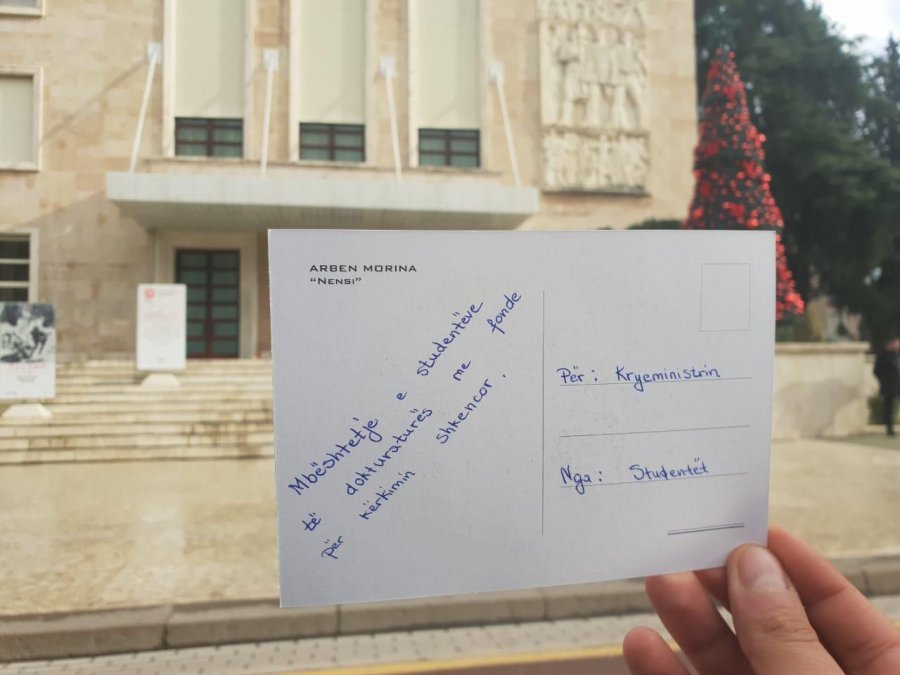 ARBEN MORINA
“NENSI”
Mbështetje e studentëve
të dokturaturës me fonde
për kërkimin shkencor.
Për: Kryeministrin
Nga: Studentët